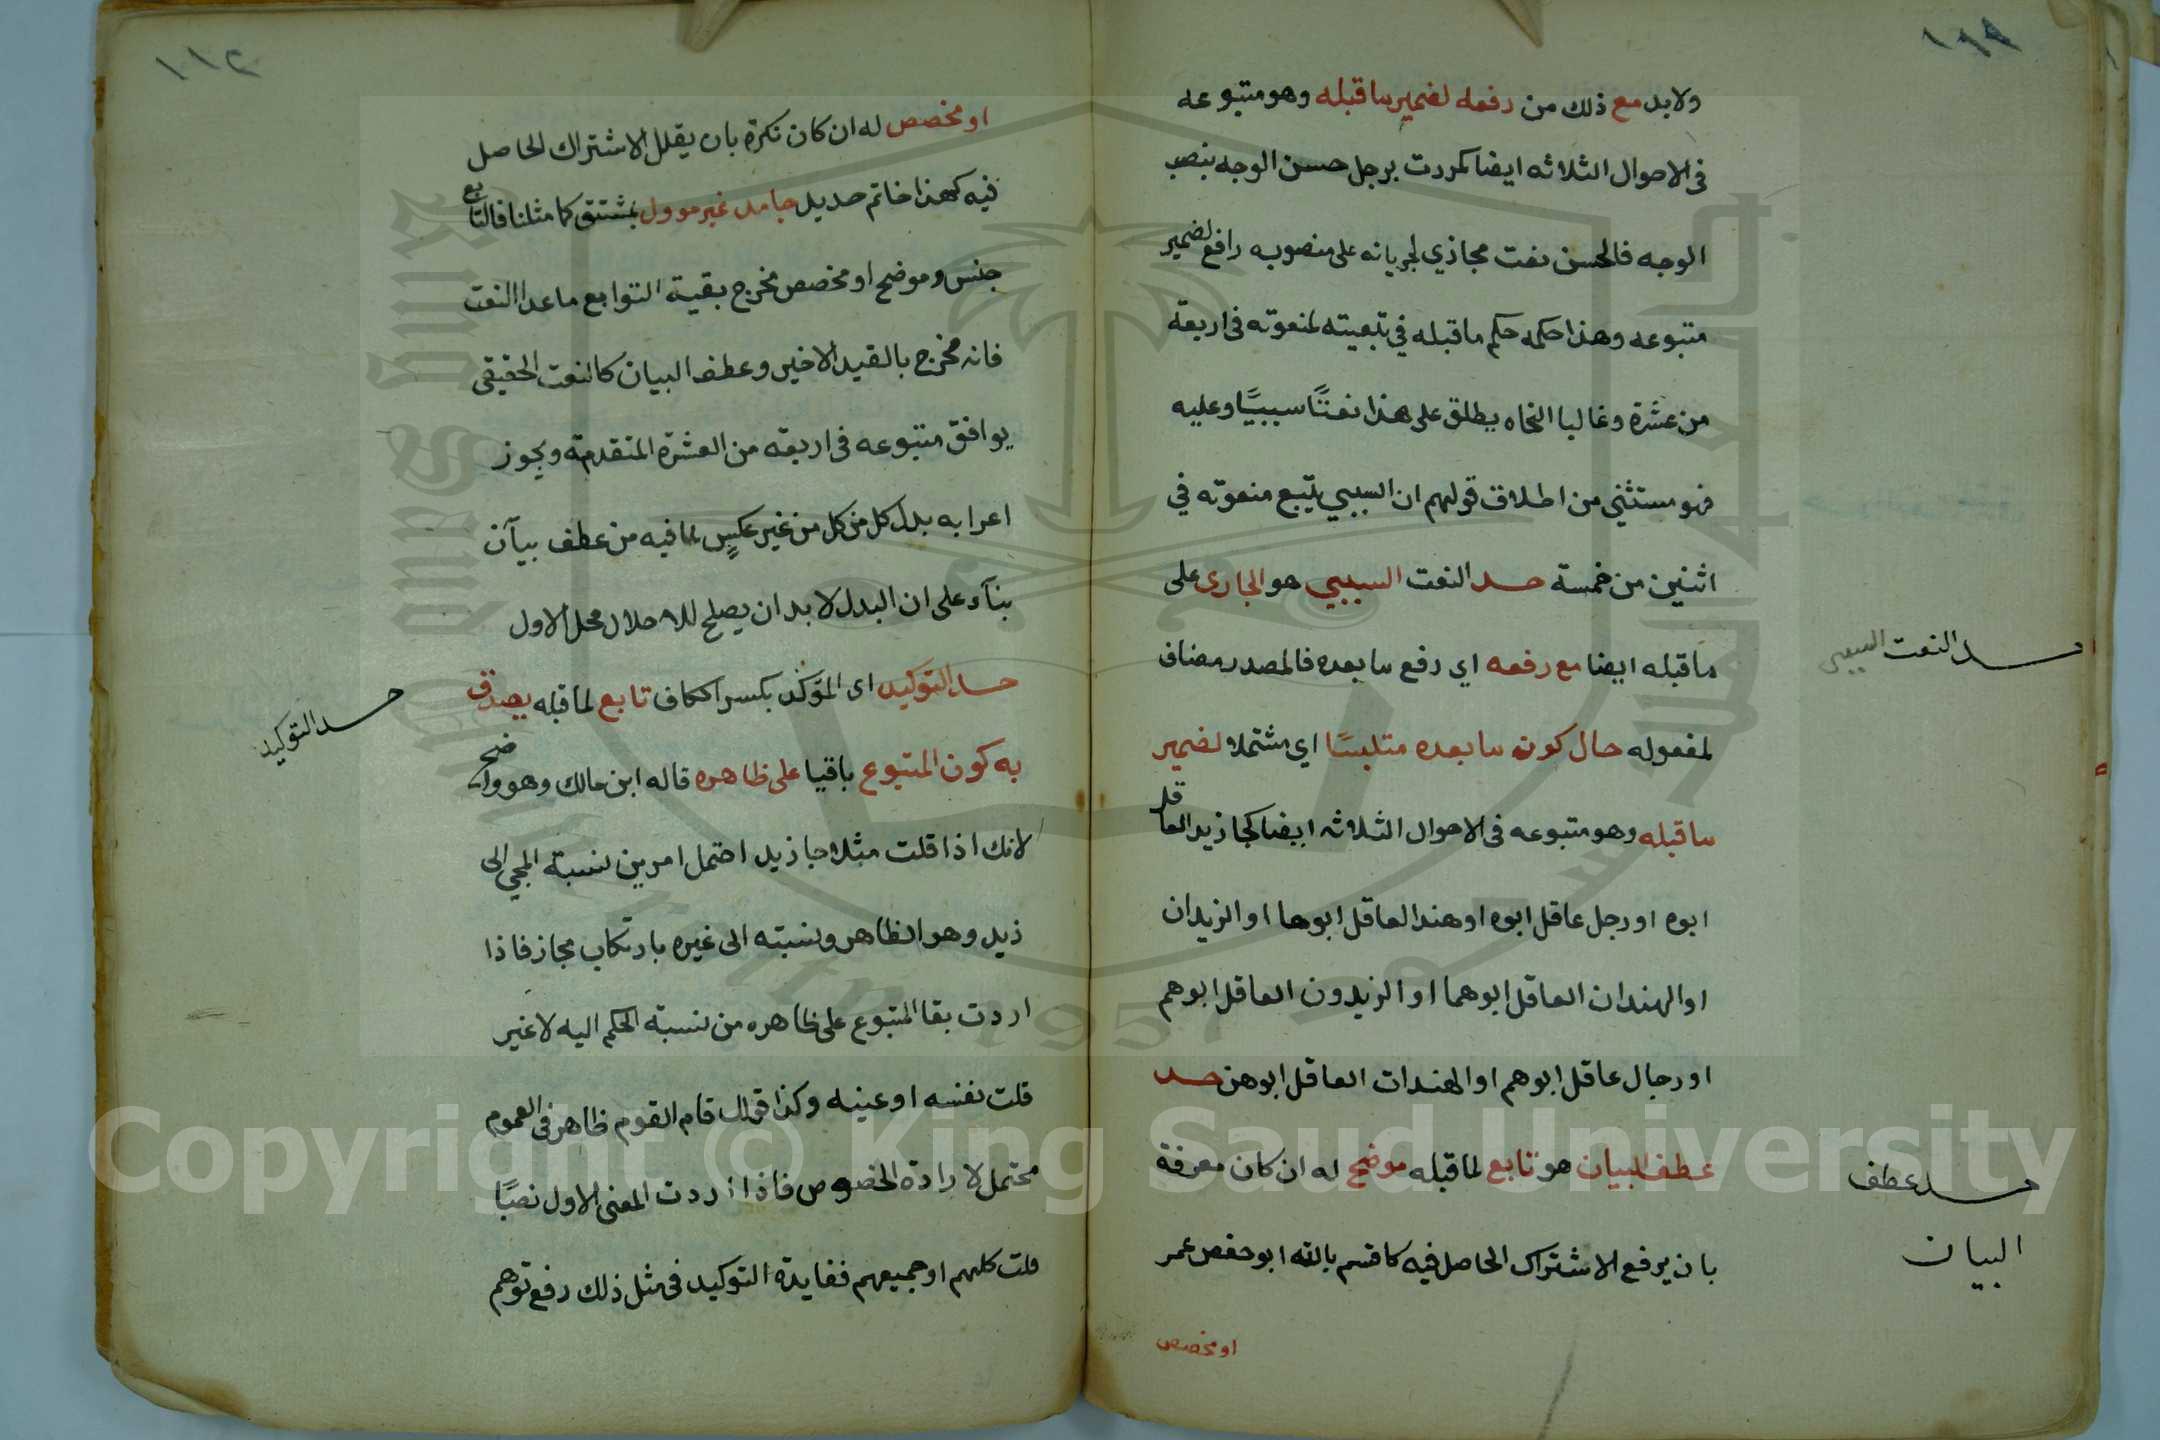 ولابد مع ذلك من رفعه لضمير ما قبله وهو متبوعه
فى الاحوال الثلاثه ايضا كمررت برجل حسن الوجه بنصب
الوجه فالحسن نعت مجازي لجريانه على منصوبه رافع لضمير
متبوعه وهذا حكمه حكم ما قبله في تبعيته لمنعوته فى اربعة
من عشرة وغالبا النحاه يطلق على هذا نعتًا سببيًا وعليه
فهو مستثنى من اطلاق قولهم ان السببي يتبع منعوته في
اثنين من خمسة حد النعت السببي هو الجارى على
ما قبله ايضا مع رفعه اي رفع ما بعده فالمصدر مضاف
لمفعوله حال كون ما بعده متلبسًا اي مشتملا لضمير
ما قبله وهو متبوعه فى الاحوال الثلاثه ايضا كجا زيد العاقل
ابوه او رجل عاقل ابوه او هند العاقل ابوها او الزيدان
او الهندان العاقل ابوهما او الزيدون العاقل ابوهم
او رجال عاقل ابوهم او الهندات العاقل ابوهن حد
عطف البيان هو تابع لما قبله موضح له ان كان معرفة
بان يرفع الاشتراك الحاصل فيه كاقسم بالله ابو حفص عمر
او مخصص
حد النعت السببي
حد عطف
البيان
١١٢
او مخصص له ان كان نكرة بان يقلل الاشتراك الحاصل
فيه كهذا خاتم حديد جامد غير موول بمشتق كما مثلنا فالتابع
جنس وموضح او مخصص مخرج بقية التوابع ما عدا النعت
فانه مخرج بالقيد الاخير وعطف البيان كالنعت الحقيقى
يوافق متبوعه فى اربعة من العشرة المتقدمة ويجوز
اعرابه بدل كل من كل من غير عكسٍ لما فيه من عطف بيآن
بنآء على ان البدل لا بد ان يصلح للاحلال محل الاول
حد التوكيد اى المؤكد بكسر الكاف تابع لما قبله يصدق
به كون المتبوع باقيا على ظاهره قاله ابن مالك وهو واضح
لانك اذا قلت مثلا جا زيد احتمل امرين نسبة المجي الى
زيد وهو الظاهر ونسبته الى غيره بارتكاب مجاز فاذا
اردت بقا المتبوع على ظاهره من نسبة الحكم اليه لا غير
قلت نفسه او عينه وكذا قولك قام القوم ظاهر فى العموم
محتمل لارادة الخصوص فاذا اردت المعنى الاول نصبًا
قلت كلهم او جميعهم ففايدة التوكيد فى مثل ذلك رفع توهم
حد التوكيد
Copyright © King Saud University
1957